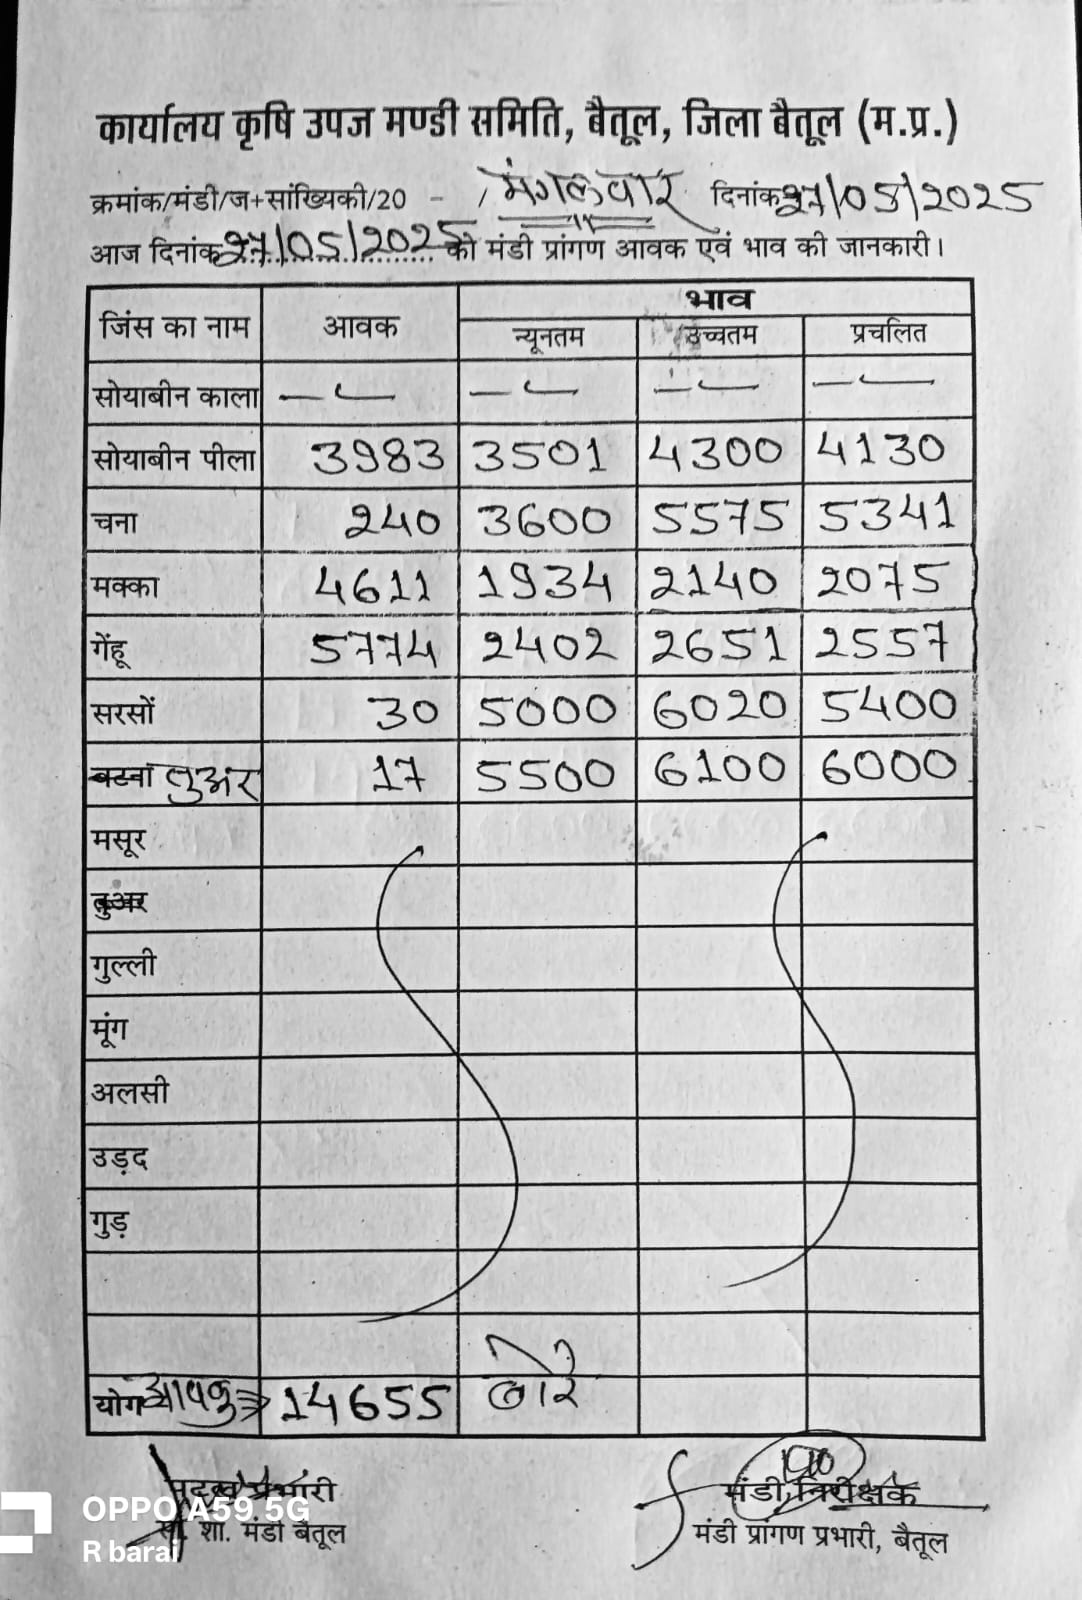 कार्यालय कृषि उपज मण्डी समिति, बैतूल, जिला बैतूल (म.प्र.)
क्रमांक/मंडी/ज+सांख्यिकी/20 - / मंगलवार दिनांक 27/05/2025
आज दिनांक 27/05/2025 को मंडी प्रांगण आवक एवं भाव की जानकारी।
भाव
जिंस का नाम आवक न्यूनतम उच्चतम प्रचलित
सोयाबीन काला — — — —
सोयाबीन पीला 3983 3501 4300 4130
चना 240 3600 5575 5341
मक्का 4611 1934 2140 2075
गेंहू 5774 2402 2651 2557
सरसों 30 5000 6020 5400
बटना तुअर 17 5500 6100 6000
मसूर
तुअर
गुल्ली
मूंग
अलसी
उड़द
गुड़
योग आवक → 14655 बोरे
प्रभारी मंडी निरीक्षक
शा. मंडी बैतूल मंडी प्रांगण प्रभारी, बैतूल
OPPO A59 5G
R barai